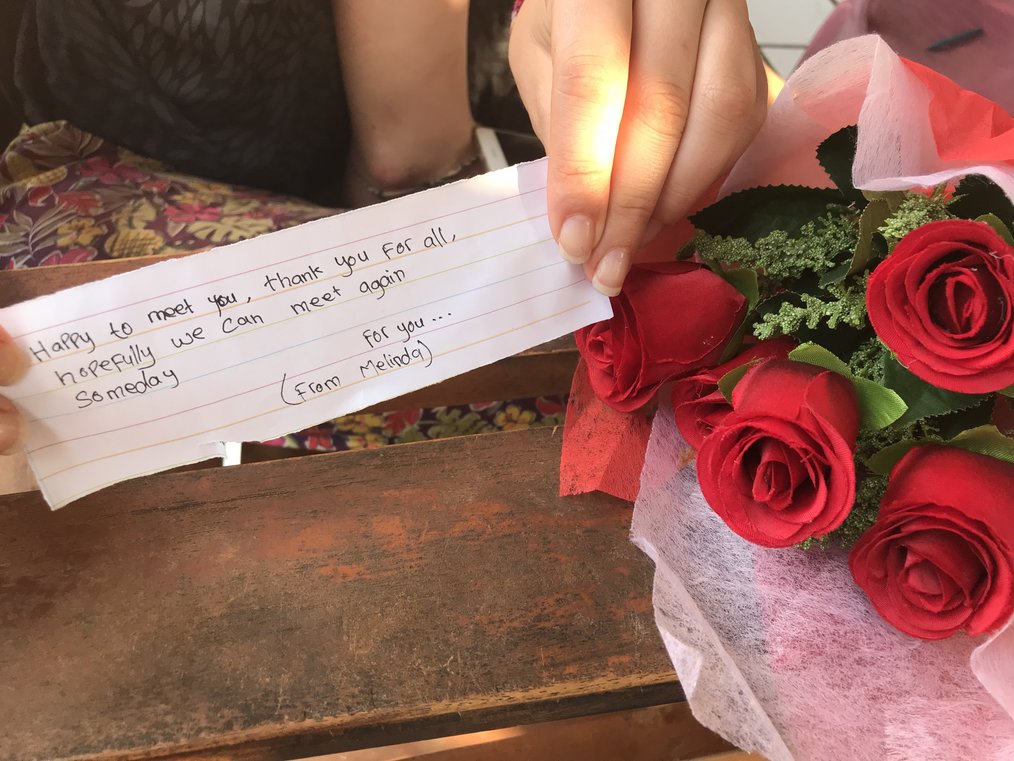 Happy to meet you, thank you for all,
hopefully we can meet again
someday
For you...
(From Melinda)